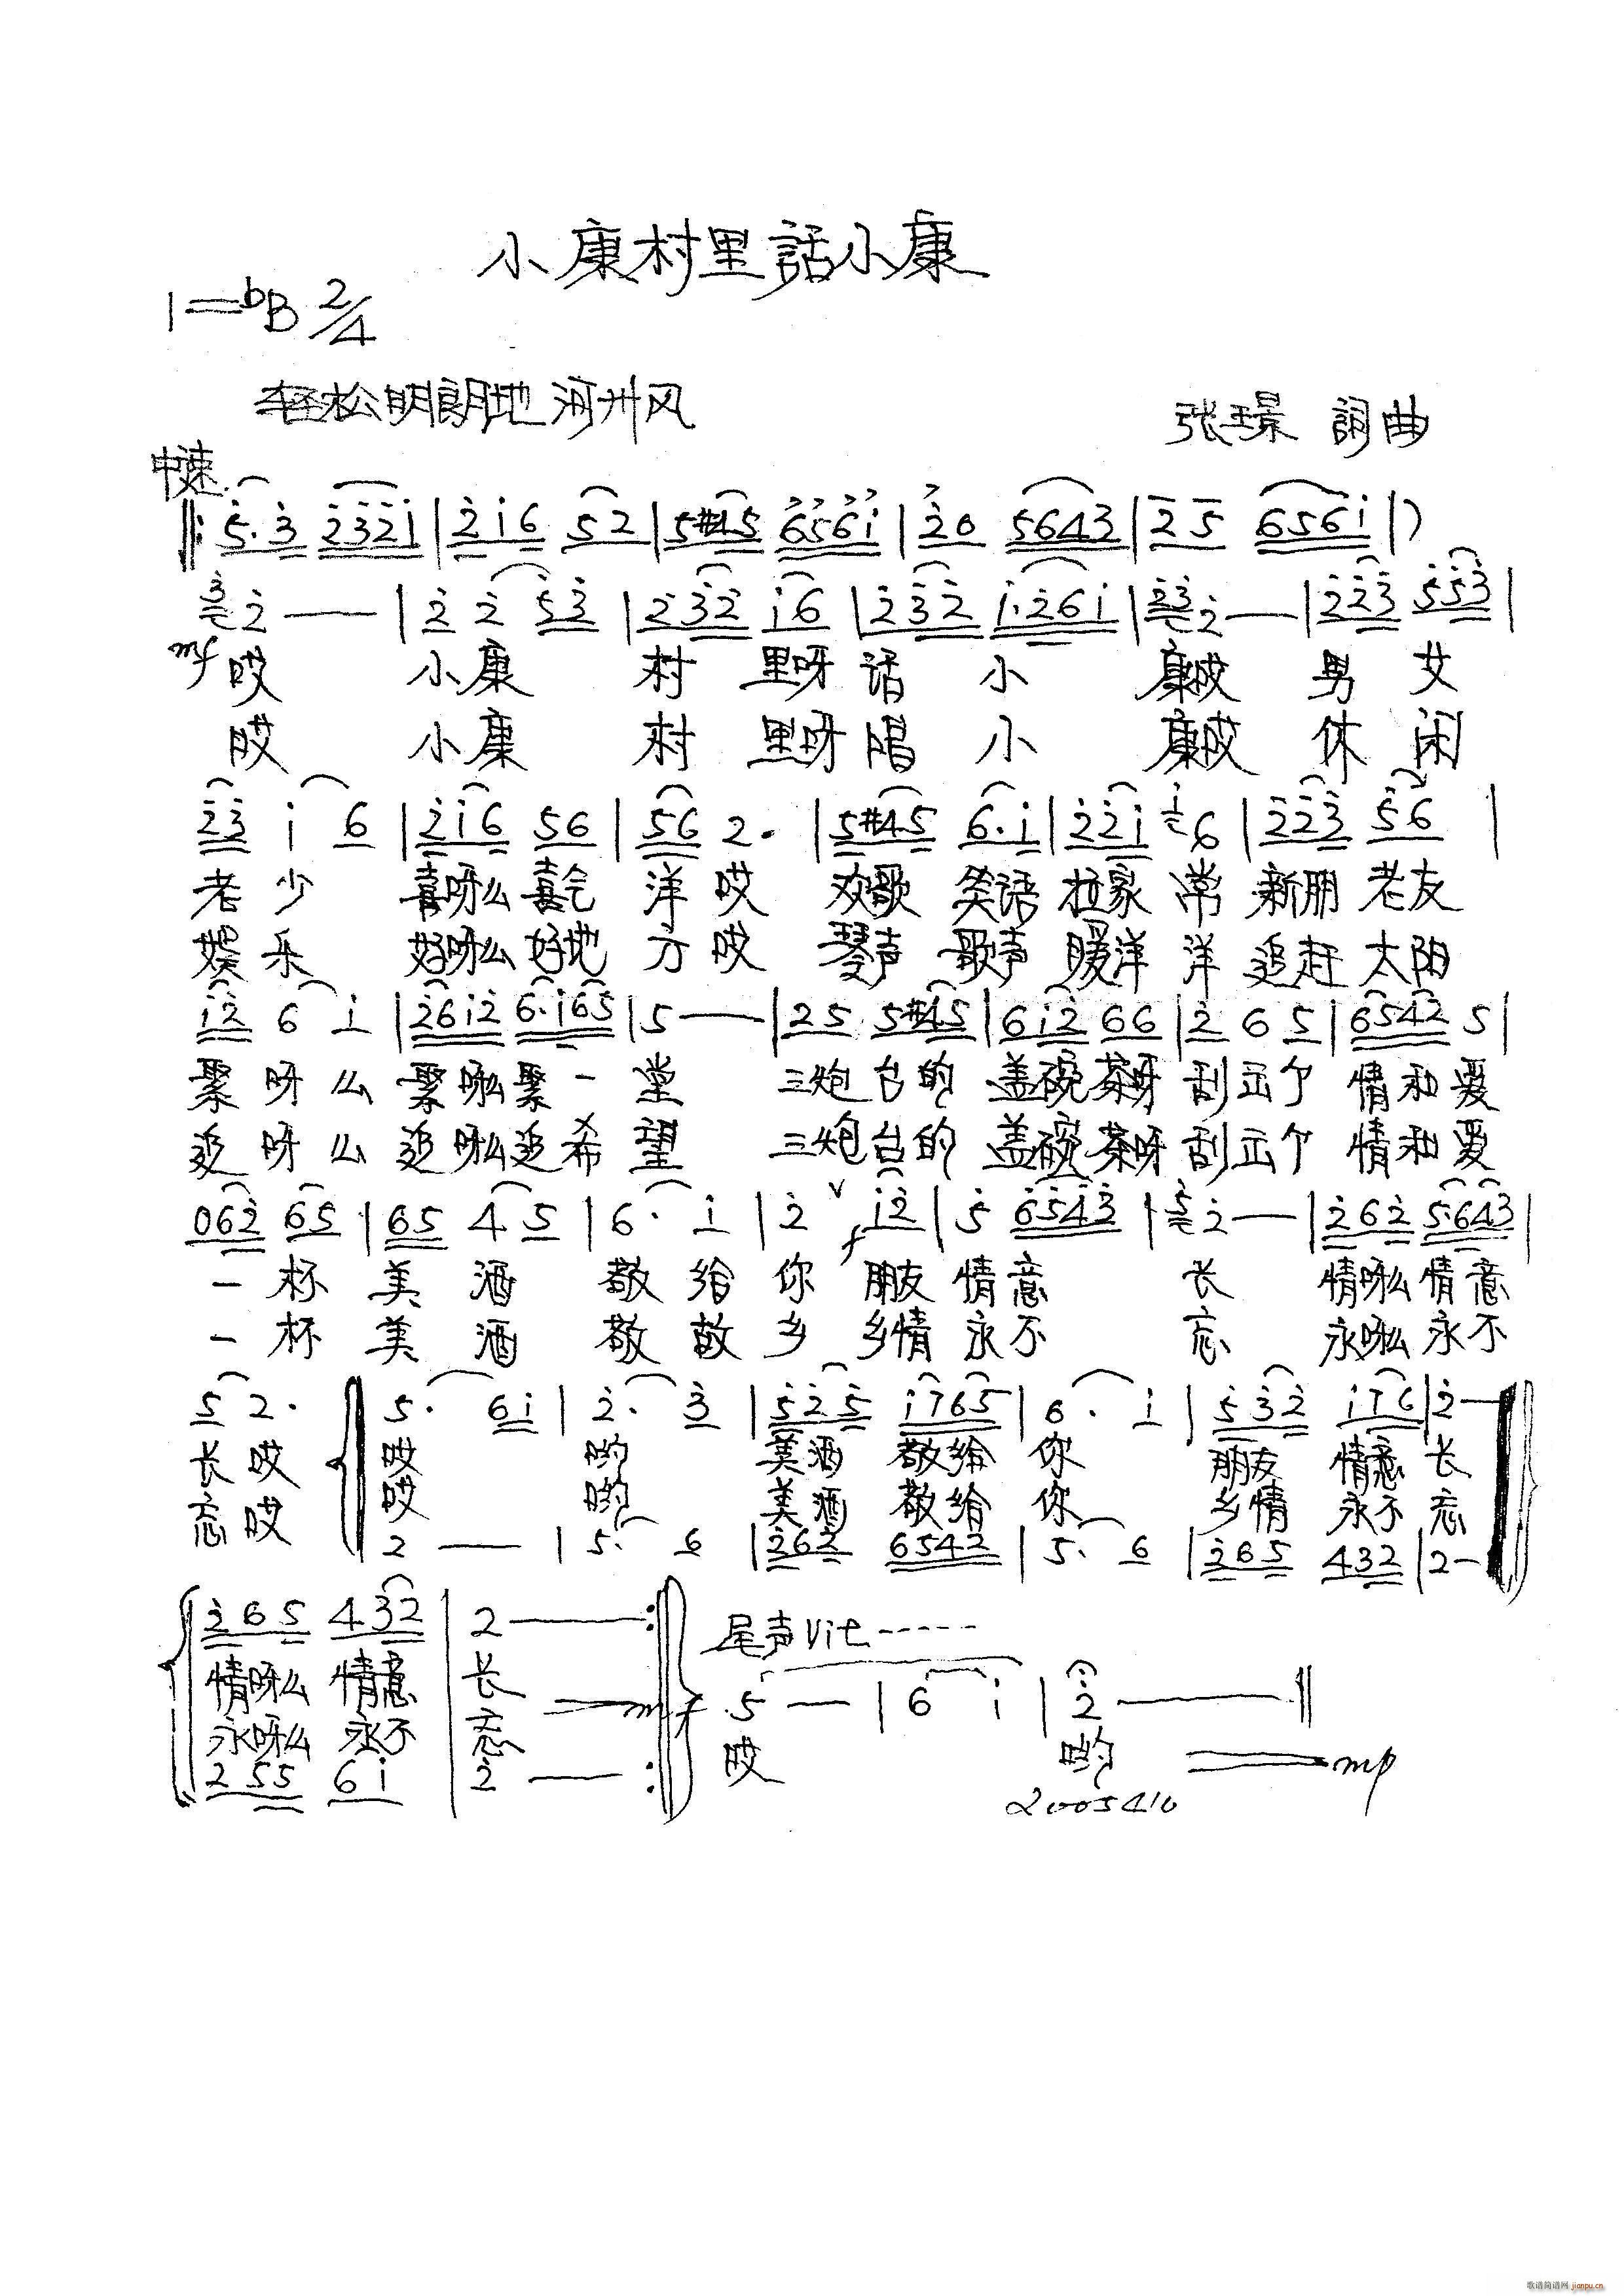 小康村里話小康
1=bB 2/4
轻松明朗地 河州风
张璟 詞曲
中速
‖: 5·3 2321 | 216 52 | 5#45 6561 | 20 5643 | 25 6561 | )
3 2 — | 2 2 53 | 232 16 | 232 1·261 | 23 2 — | 223 553 |
mf 哎 小康 村 里呀 话 小 康哎 男 女
哎 小康 村 里呀 唱 小 康哎 休 闲
23 1 6 | 216 56 | 56 2· | 5#45 6·1 | 221 1 6 | 223 56 |
老 少 喜呀么 喜气 洋 哎 欢歌 笑语 拉家 常 新朋 老友
娱 乐 好呀么 好地 方 哎 琴声 歌声 暖洋 洋 追赶 太阳
12 6 1 | 2612 6·165 | 5 — | 25 5#45 | 612 66 | 2 6 5 | 6542 5 |
聚 呀 么 聚呀么聚 一 堂 三炮 台的 盖碗茶呀 刮出个 情和爱
追 呀 么 追呀么追 希 望 三炮 台的 盖碗茶呀 刮出个 情和爱
062 65 | 65 4 5 | 6· 1 | 2 ∨ f 12 | 5 6543 | 5 2 — | 262 5·643 |
一 杯 美 酒 敬 给 你 朋友 情意 长 情呀么 情意
一 杯 美 酒 敬 故 乡 乡情 永不 忘 永呀么 永不
5 2· 5· 61 | 2· 3 | 525 1765 | 6· 1 | 532 176 | 2 —
长 哎 哎 哟 美酒 敬给 你 朋友 情意 长
忘 哎 哎 哟 美酒 敬给 你 乡情 永不 忘
2 — | 5· 6 | 262 6542 | 5· 6 | 265 432 | 2 —
265 432 | 2 — :‖ 尾声 Vit -----
情呀么 情意 长 mf 5 — | 6 1 | 2 — ‖
永呀么 永不 忘 哎 哟 mp
255 61 | 2 — :‖
2005410
歌谱简谱网 jianpu.cn